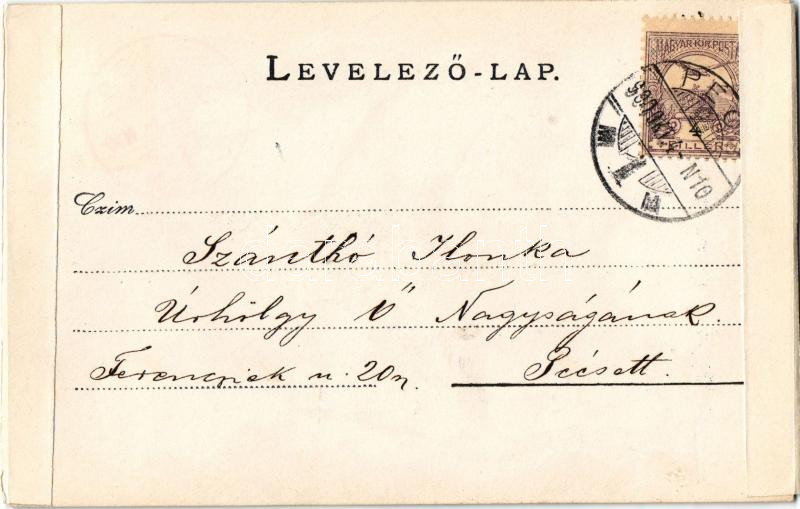 LEVELEZŐ-LAP.
MAGYAR KIR. POSTA
PÉC
FILLÉR
N10
M
Czim
Szánthó Ilonka
Úrhölgy Ő Nagyságának.
Ferencziek u. 20 n.
Pécsett.